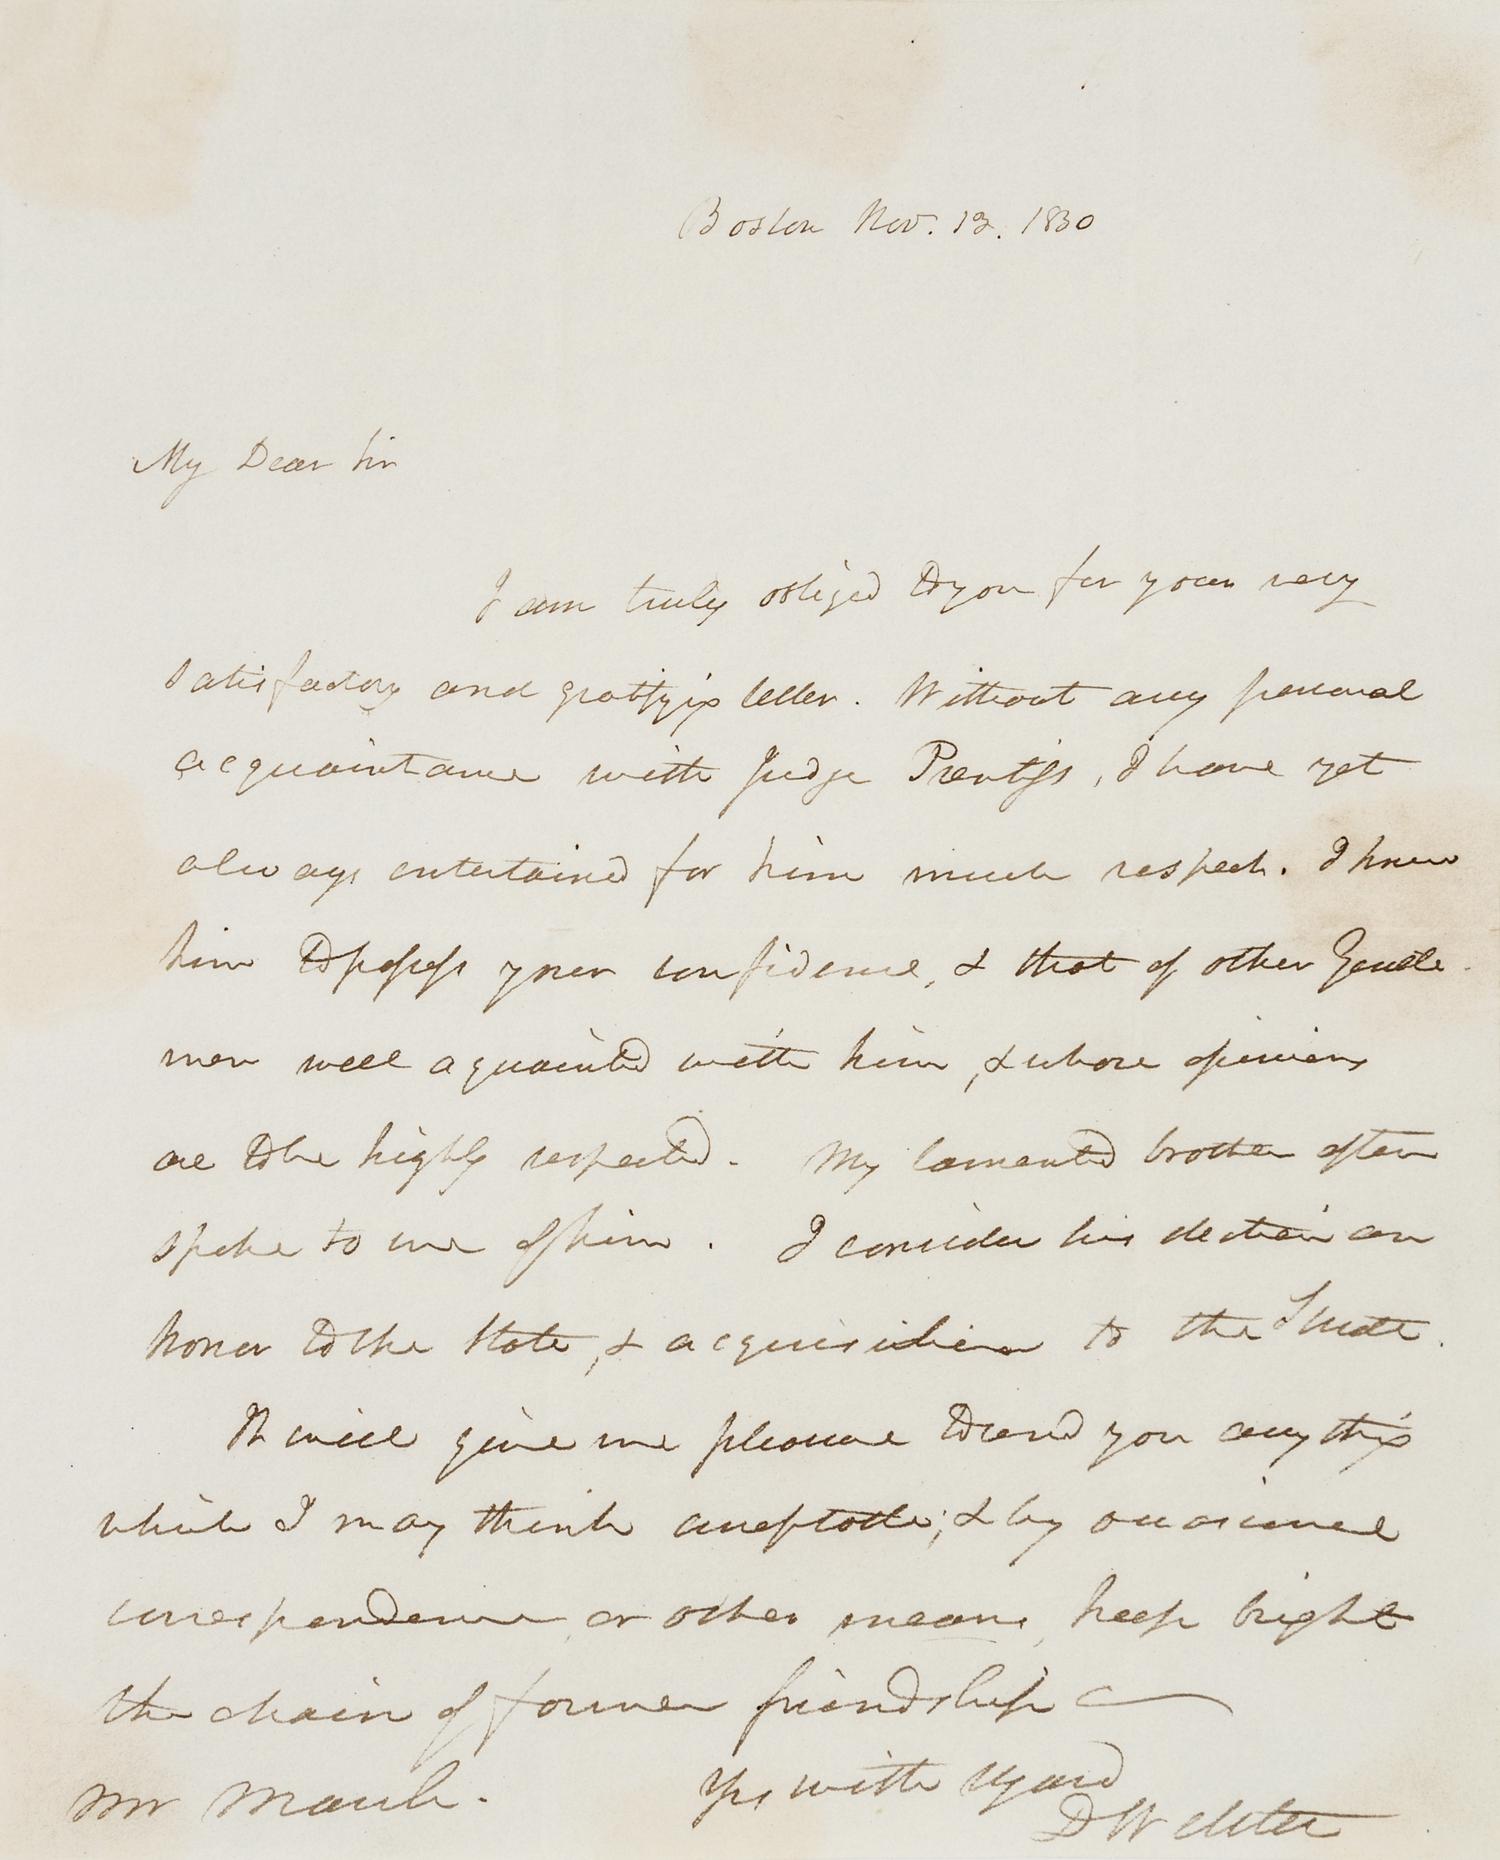 Boston Nov. 12. 1830
My Dear Sir
I am truly obliged to you for your very
satisfactory and gratifying letter. Without any personal
acquaintance with Judge Prentiss, I have yet
always entertained for him much respect. I knew
him to possess your confidence, & that of other Gentle-
men well aquainted with him, & whose opinions
are to be highly respected. My lamented brother often
spoke to me of him. I consider his election an
honor to the State, & acquisition to the Senate.
It will give me pleasure to send you any thing
which I may think acceptable; & by occasional
correspondence, or other means, keep bright
the chain of former friendship
Yrs with regard
Mr Marsh.
D Webster